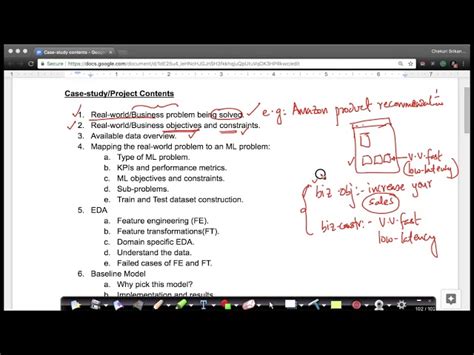 Case-study contents - Google
Chekuri Srikan
Secure
https://docs.google.com/document/d/
Case-study/Project Contents
1. Real-world/Business problem being solved.
e.g: Amazon product recommendation
2. Real-world/Business objectives and constraints.
3. Available data overview.
4. Mapping the real-world problem to an ML problem.
a. Type of ML problem.
b. KPIs and performance metrics.
c. ML objectives and constraints.
d. Sub-problems.
e. Train and Test dataset construction.
V.V.fast
(low-latency)
biz obj:- increase your
sales
biz constr:- V.V.fast
low-latency
5. EDA
a. Feature engineering (FE).
b. Feature transformations(FT).
c. Domain specific EDA.
d. Understand the data.
e. Failed cases of FE and FT.
6. Baseline Model
a. Why pick this model?
b. Implementation and results